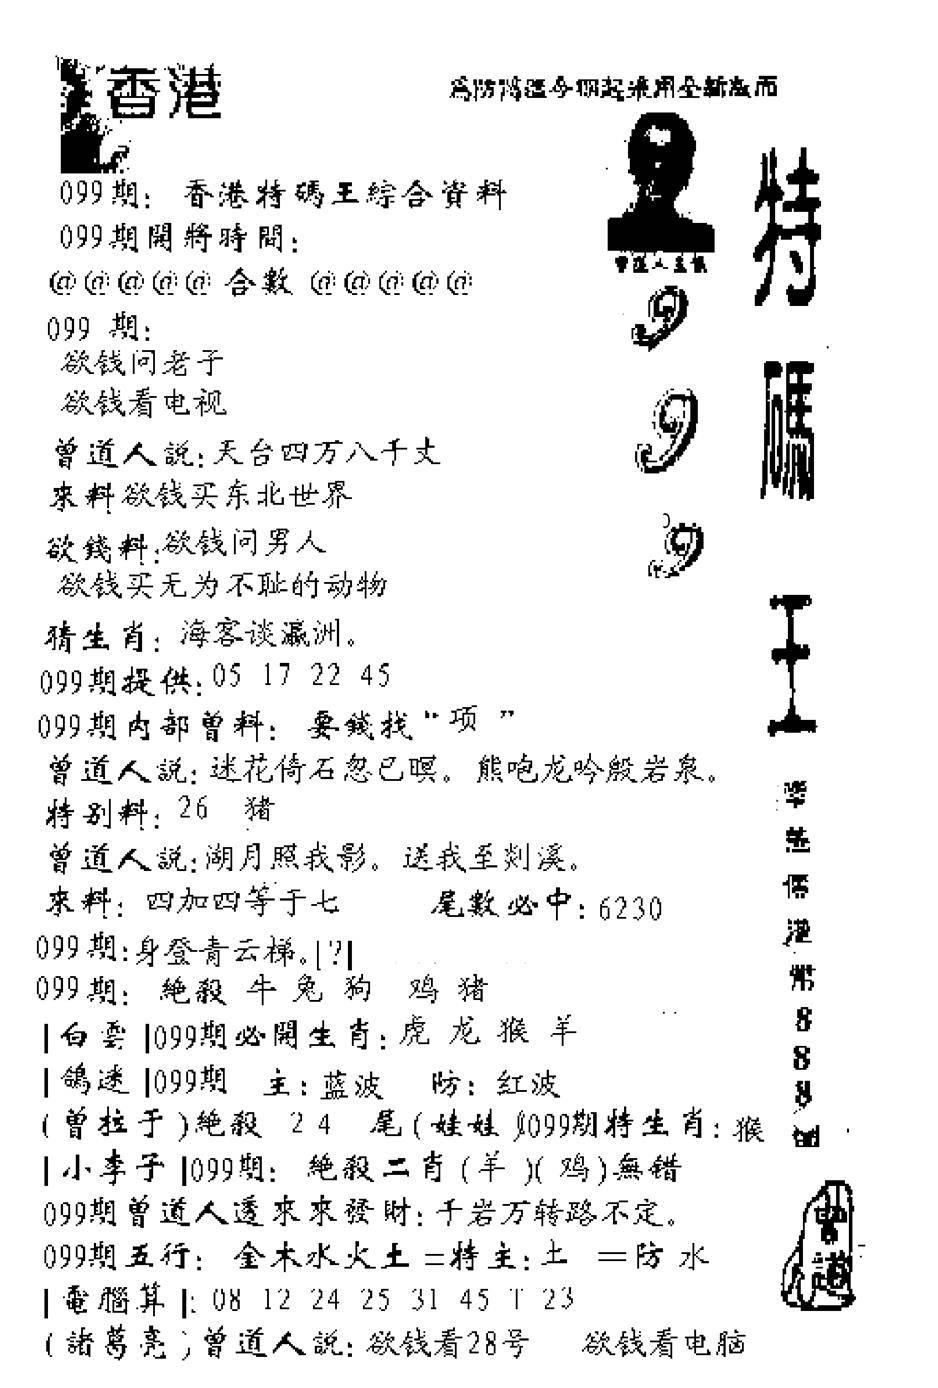 香港
為防鴻運今期起采用全新版面
099期: 香港特碼王綜合資料
099期開將時間:
@@@@@ 合數 @@@@@
099 期:
欲钱问老子
欲钱看电视
曾道人説:天台四万八千丈
來料欲钱买东北世界
欲錢料:欲钱问男人
欲钱买无为不耻的动物
猜生肖: 海客谈瀛洲。
099期提供:05 17 22 45
099期内部曾料: 要錢找“项 ”
曾道人説:迷花倚石忽已暝。熊咆龙吟殷岩泉。
特别料: 26 猪
曾道人説:湖月照我影。送我至剡溪。
來料: 四加四等于七 尾數必中: 6230
099期:身登青云梯。|?|
099期: 絶殺 牛 兔 狗 鸡 猪
|白雲|099期必開生肖:虎 龙 猴 羊
|鴿迷|099期 主: 蓝波 防: 红波
(曾拉于)絶殺 2 4 尾(娃娃)099期特生肖: 猴
|小李子|099期: 絶殺二肖(羊)(鸡)無错
099期曾道人透來來發財:千岩万转路不定。
099期五行: 金木水火土=特主:土 =防 水
|電腦算|: 08 12 24 25 31 45 T 23
(諸葛亮)曾道人説:欲钱看28号 欲钱看电脑
9
9
9
特
碼
王
港
幣
8
8
8
曾
道